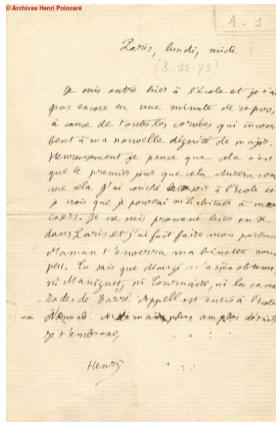 © Archives Henri Poincaré
A - 1
Paris, lundi, midi.
(3-11-73)
Je suis entré hier à l'École et je n'ai
pas encore eu une minute de repos,
à cause de toutes les corvées qui incom
bent à ma nouvelle dignité de major.
Heureusement je pense que cela n'est
que le premier jour que cela durera com
me cela. J'ai couché à l'école et
je crois que je pourrai m'habituer à mon
casert. Je me suis promené hier en
dans Paris et j'ai fait faire mon portrait
Maman t'enverra ma binette sous
peu. Tu sais que n'a rien obtenu
ni ni Tournaire, ni les ca ma
rades de Barré. Appell est entré à l'école
Normale. A demain plus amples détails
Je t'embrasse,
Henri